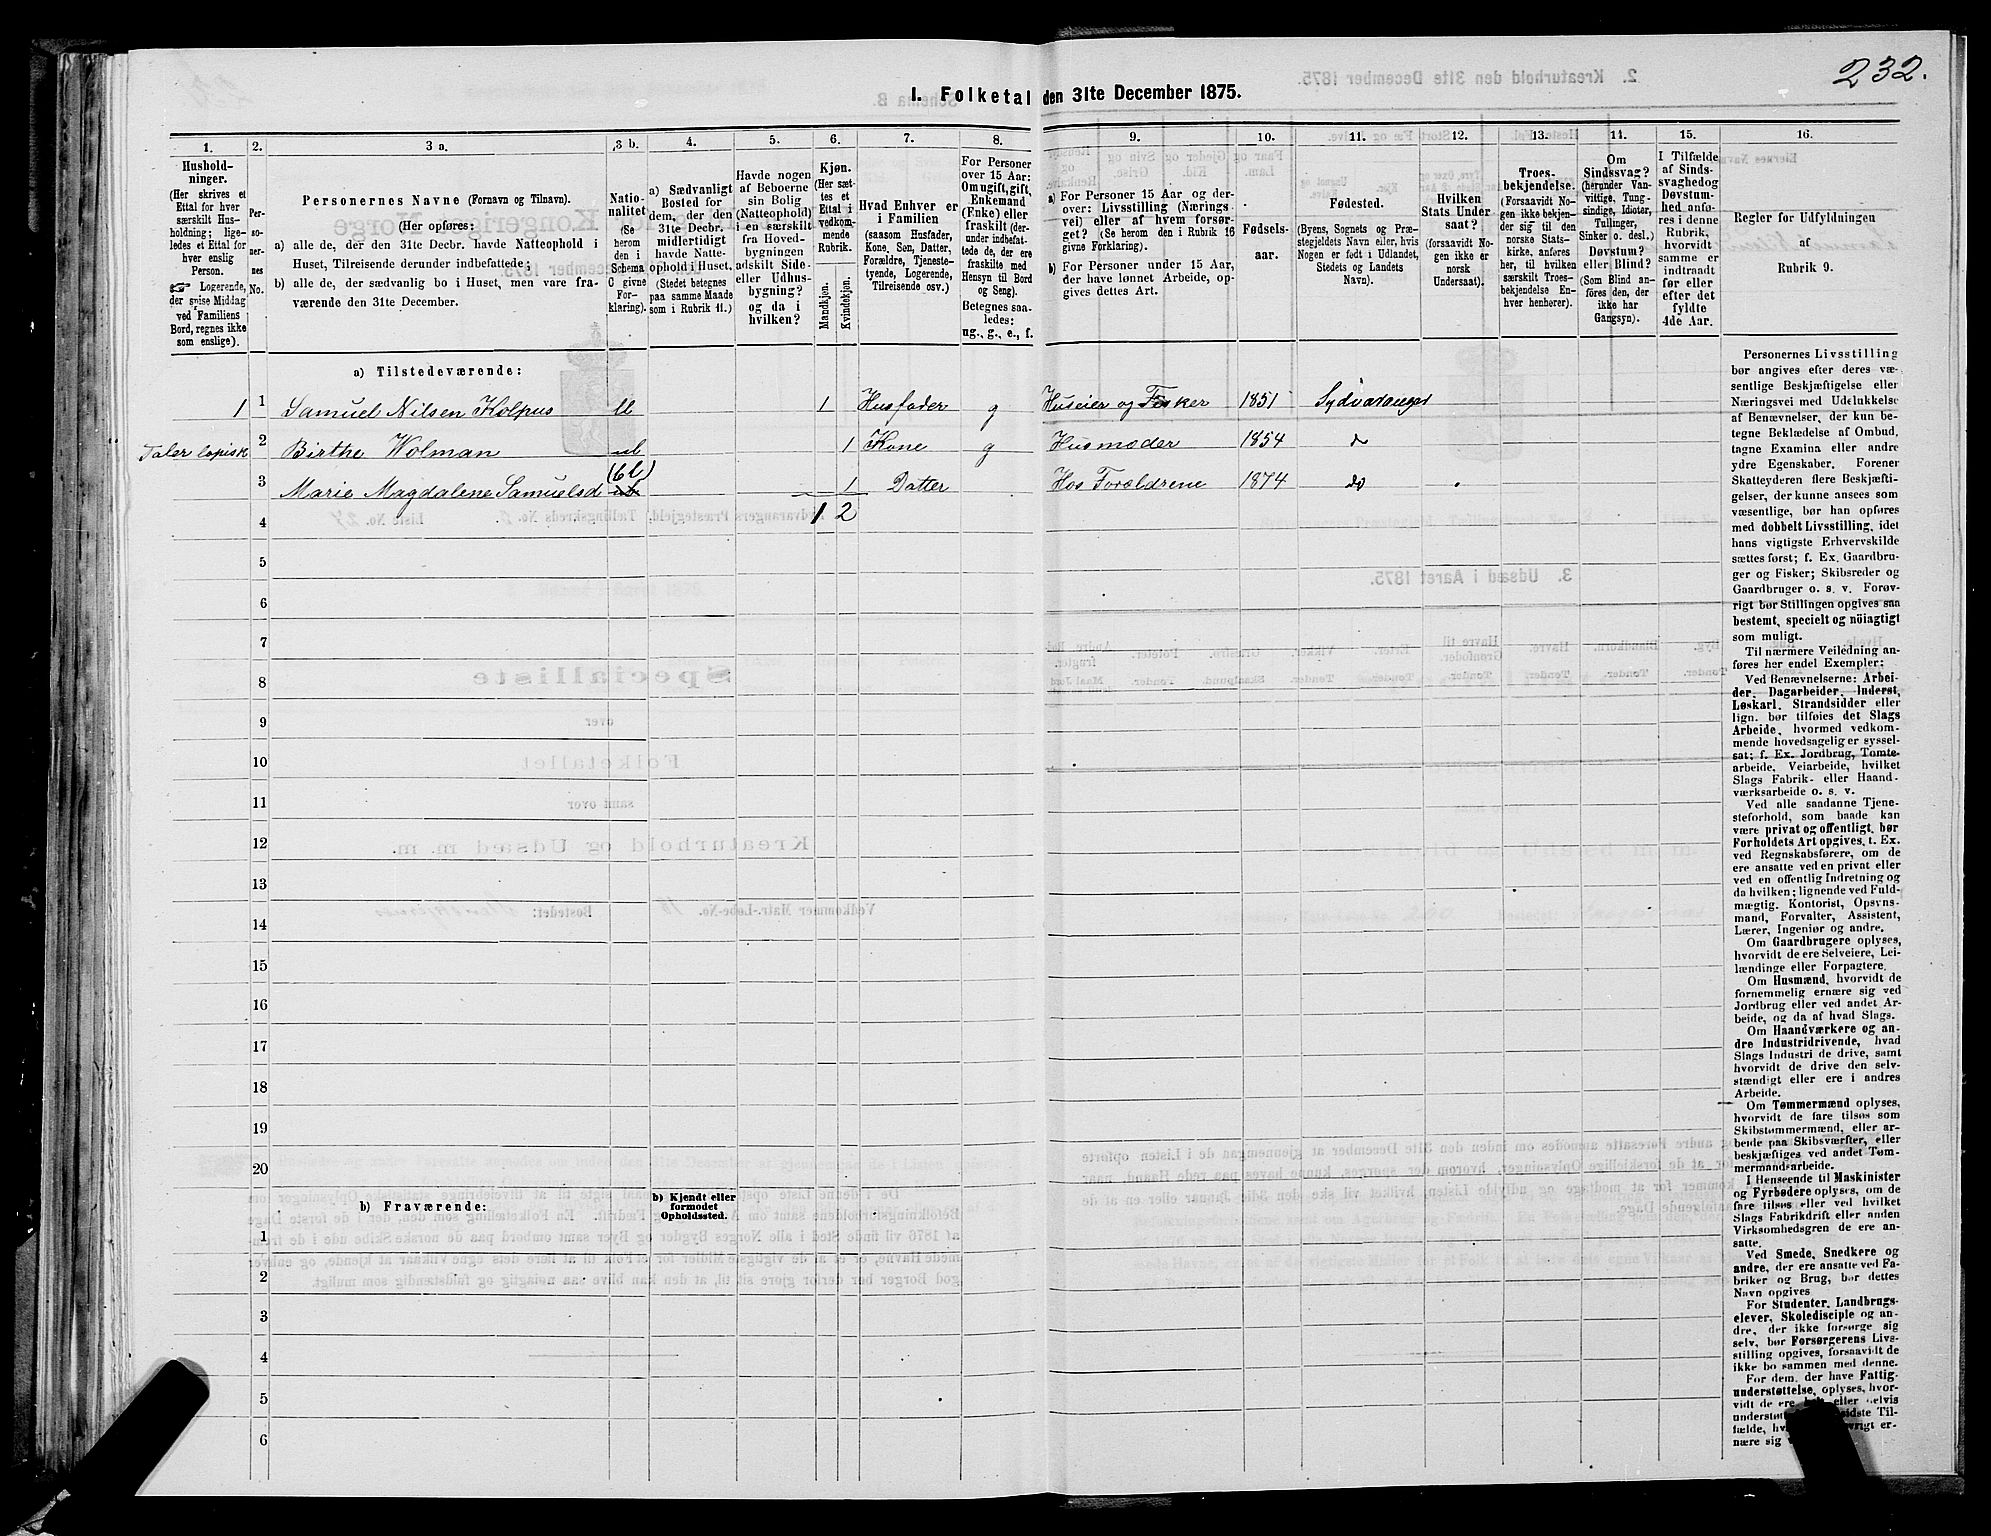 232.
I. Folketal den 31te December 1875.
1. 2. 3 a. 3 b. 4. 5. 6. 7. 8. 9. 10. 11. 12. 13. 14. 15. 16.
Hushold-
ninger.
(Her skrives et
Ettal for hver
særskilt Hus-
holdning; lige-
ledes et Ettal for
hver enslig
Person.
☞ Logerende,
der spise Middag
ved Familiens
Bord, regnes ikke
som enslige).
Per-
so-
ner-
nes
No.
Personernes Navne (Fornavn og Tilnavn).
(Her opføres:
a) alle de, der den 31te Decbr. havde Natteophold i
Huset, Tilreisende derunder indbefattede;
b) alle de, der sædvanlig bo i Huset, men vare fra-
værende den 31te December.
Natio-
nalitet
(Se
herom
den i
Schema
C givne
For-
klaring).
a) Sædvanligt
Bosted for
dem, der den
31te Decbr.
midlertidigt
havde Natte-
ophold i Huset.
(Stedet betegnes
paa samme Maade
som i Rubrik 11.)
Havde nogen
af Beboerne
sin Bolig
(Natteophold)
i en særskilt
fra Hoved-
bygningen
adskilt Side-
eller Udhus-
bygning?
og da i
hvilken?
Kjøn.
(Her sæt-
tes et
Ettal i
vedkom-
mende
Rubrik.
Mandkjøn.
Kvindekjøn.
Hvad Enhver er
i Familien
(saasom Husfader,
Kone, Søn, Datter,
Forældre, Tjeneste-
tyende, Logerende,
Tilreisende osv.)
For Personer
over 15 Aar:
Om ugift, gift,
Enkemand
(Enke) eller
fraskilt (der-
under indbefat-
tede de, der ere
fraskilte med
Hensyn til Bord
og Seng).
Betegnes saa-
ledes:
ug., g., e., f.
a) For Personer 15 Aar og der-
over: Livsstilling (Nærings
vei) eller af hvem forsør-
get? (Se herom den i Rubrik 16
givne Forklaring).
b) For Personer under 15 Aar,
der have lønnet Arbeide, op-
gives dettes Art.
Fødsels-
aar.
Fødested.
(Byens, Sognets og Præ-
stegjeldets Navn eller, hvis
Nogen er født i Udlandet,
Stedets og Landets
Navn).
Hvilken
Stats Under
saat?
(forsaavidt No-
gen ikke er
norsk
Undersaat).
Troes-
bekjendelse.
(Forsaavidt No-
gen ikke bekjen-
der sig til den
norske Stats-
kirke, anføres
her, til hvilken
særskilt Troes-
bekjendelse En-
hver henhører).
Om
Sindssvag?
(herunder Van-
vittige, Tung-
sindige, Idioter,
Tullinger,
Sinker o. desl.)
Døvstum?
eller Blind?
(Som Blind an-
føres den, der
ikke har
Gangsyn).
I Tilfælde
af Sinds-
svaghed og
Døvstum-
hed anfø-
res i denne
Rubrik,
hvorvidt
samme er
indtraadt
før eller
efter det
fyldte
4de Aar.
Regler for Udfyldningen
af
Rubrik 9.
a) Tilstedeværende:
1 1 Samuel Nilsen Kolpus 1 Husfader g Huseier og Fisker 1851 Sydvaranger
Taler lapisk 2 Birthe Wolman 1 Kone g Husmoder 1854 do
3 Marie Magdalene Samuelsd (bl) 1 Datter Hos Forældrene 1874 do
4 1 2
5
6
7
8
9
10
11
12
13
14
15
16
17
18
19
20
b) Fraværende:
b) Kjendt eller
formodet
Opholdssted.
1
2
3
4
5
6
Personernes Livsstilling
bør angives efter deres væ-
sentlige Beskjæftigelse eller
Næringsvei med Udelukkelse
af Benævnelser, der kun be-
tegne Beklædelse af Ombud,
tagne Examina eller andre
ydre Egenskaber. Forener
Skatteyderen flere Beskjæfti-
gelser, der kunne ansees som
væsentlige, bør han opføres
med dobbelt Livsstilling, idet
hans vigtigste Erhvervskilde
sættes først; f. Ex. Gaardbru-
ger og Fisker; Skibsreder og
Gaardbruger o. s. v. Forøv-
rigt bør Stillingen opgives saa
bestemt, specielt og nöiagtigt
som muligt.
Til nærmere Veiledning an-
føres her endel Exempler:
Ved Benævnelserne: Arbei-
der, Dagarbeider, Inderst,
Løskarl, Strandsidder eller
lign. bør tilføies det Slags
Arbeide, hvormed vedkom-
mende hovedsagelig er syssel-
sat; f. Ex. Jordbrug, Tomte-
arbeide, Veiarbeide, hvilket
Slags Fabrik- eller Haand-
værksarbeide o. s. v.
Ved alle saadanne Tjene-
steforhold, som baade kan
være privat og offentligt, bør
Forholdets Art opgives, t. Ex.
ved Regnskabsførere, om de
ere ansatte ved en privat eller
ved en offentlig Indretning og
da hvilken; lignende ved Fuld-
mægtig, Kontorist, Opsyns-
mand, Forvalter, Assistent,
Lærer, Ingeniør og andre.
Om Gaardbrugere oplyses,
hvorvidt de ere Selveiere, Lei-
lændinge eller Forpagtere.
Om Husmænd, hvorvidt de
fornemmelig ernære sig ved
Jordbrug eller ved andet Ar-
beide, og da af hvad Slags.
Om Haandværkere og an-
dre Industridrivende, hvad
Slags Industri de drive, samt
hvorvidt de drive den selv-
stændigt eller ere i andres
Arbeide.
Om Tømmermænd oplyses,
hvorvidt de fare tilsøs som
Skibstømmermænd, eller ar-
beide paa Skibsværfter, eller
beskjæftiges ved andet Tøm-
mermandsarbeide.
I Henseende til Maskinister
og Fyrbødere oplyses, om de
fare tilsøs eller ved hvilket
Slags Fabrikdrift eller anden
Virksomhedsgren de ere an-
satte.
Ved Smede, Snedkere og
andre, der ere ansatte ved Fa-
briker og Brug, bør dettes
Navn opgives
For Studenter, Landbrugs-
elever, Skoledisciple og an-
dre, der ikke forsørge sig
selv, bør Forsørgerens Livs-
stilling opgives, forsaavidt de
ikke bo sammen med denne.
For dem, der have Fattig-
understøttelse, oplyses, hvor-
vidt de ere eller delvis
sidste Til-
fælde, vrigt er-
nære sig